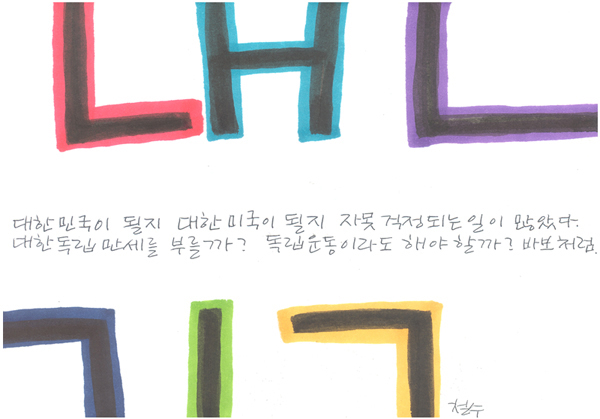 ㄴㅐㄴ
대한민국이 될지 대한미국이 될지 자못 걱정되는 일이 많았다.
대한독립만세를 부를까? 독립운동이라도 해야 할까? 바보처럼.
ㄱㅣㄱ
철수